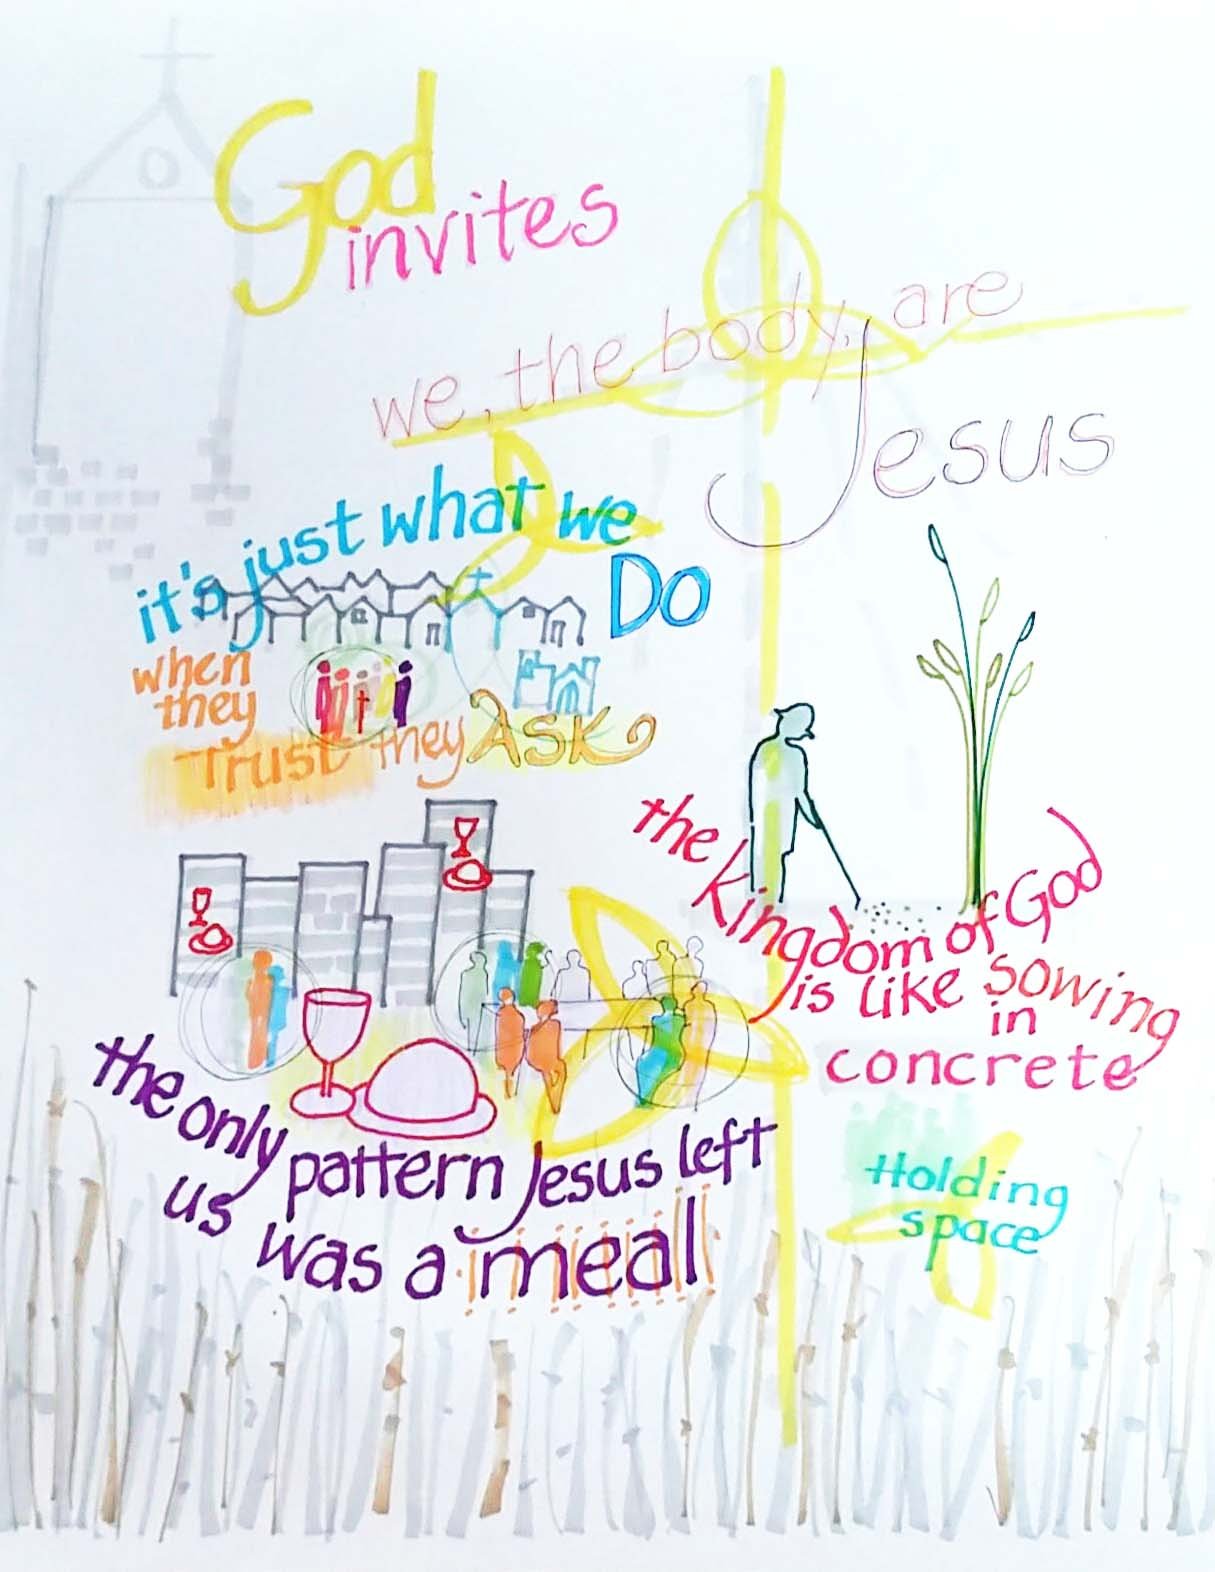 God
invites
we, the body, are
Jesus
it's just what we
Do
when
they
Trust they ASK
the kingdom of God
is like sowing
in
concrete
the only pattern Jesus left
us was a meal
Holding
space